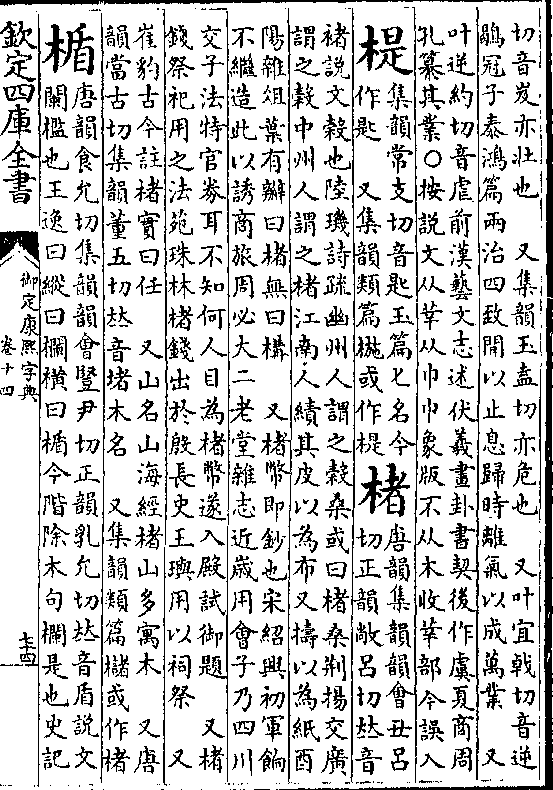 切音岌亦壯也　又集韻玉盍切亦危也　又叶宜戟切音逆
鶡冠子泰鴻篇兩治四致間以止息歸時離氣以成萬業　又
叶逆約切音虐前漢藝文志述伏羲畫卦書契後作虞夏商周
孔纂其業○按說文从丵从巾巾象版不从木收丵部今誤入
楻集韻常支切音匙玉篇匕名今
作匙　又集韻類篇㮛或作楻
楮唐韻集韻韻會丑呂
切正韻敞呂切𠀤音
褚說文榖也陸璣詩疏幽州人謂之榖桑或曰楮桑荆揚交廣
謂之榖中州人謂之楮江南人績其皮以為布又擣以為紙酉
陽雜俎葉有瓣曰楮無曰構　又楮幣即鈔也宋紹興初軍餉
不繼造此以誘商旅周必大二老堂雜志近歲用會子乃四川
交子法特官劵耳不知何人目為楮幣遂入殿試御題　又楮
錢祭祀用之法苑珠林楮錢出於殷長史王璵用以祠祭　又
崔豹古今註楮實曰任　又山名山海經楮山多寓木　又唐
韻當古切集韻董五切𠀤音堵木名　又集韻類篇櫧或作楮
楯唐韻食允切集韻韻會豎尹切正韻乳允切𠀤音盾說文
闌檻也王逸曰縱曰欄橫曰楯今階除木句欄是也史記
欽定四庫全書
御定康熙字典
卷十四
七十四